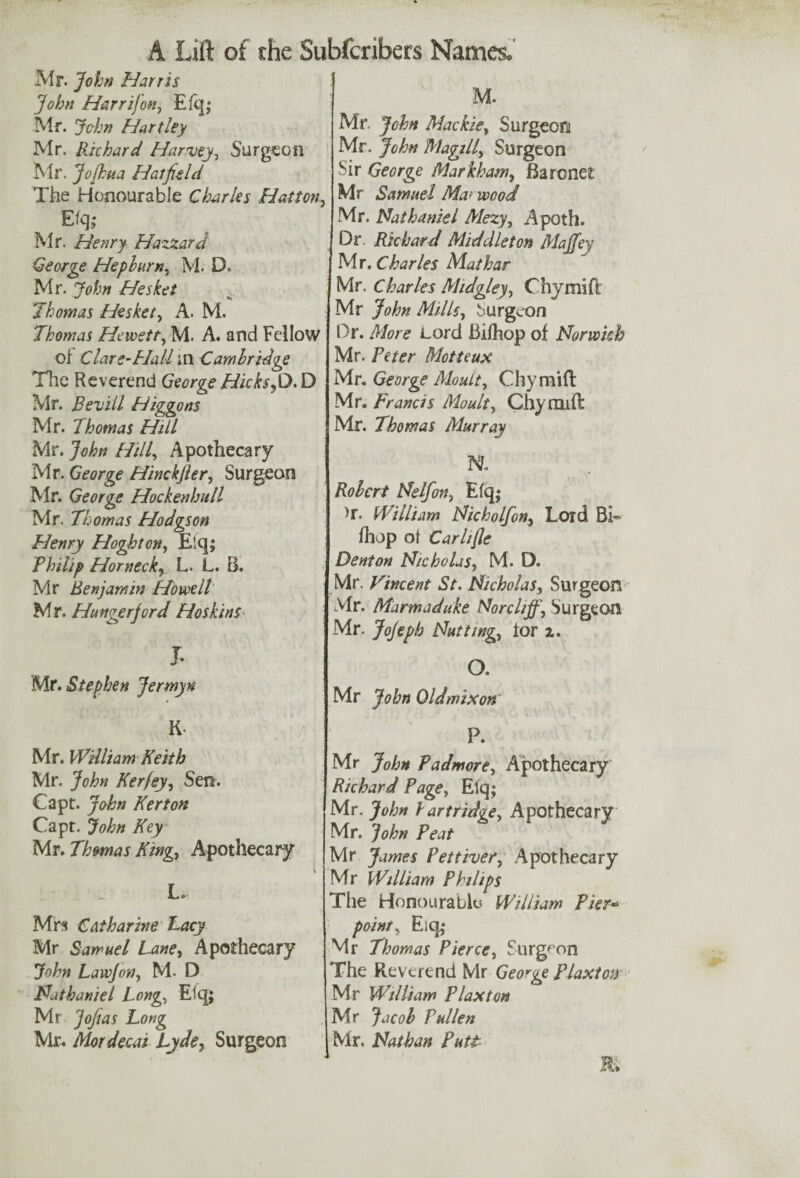 A Liſt of the Subſcribers Names.
Mr. John Harris
John Harriſon, Eſq;
Mr. John Hartley
Mr. Richard Harvey, Surgeon
Mr. Joſhua Hatfield
The Honourable Charles Hatton,
Eſq;
Mr. Henry Hazzard
George Hepburn, M. D.
Mr. John Hesket
Thomas Hesket, A. M.
Thomas Hewett, M. A. and Fellow
of Clare-Hall in Cambridge
The Reverend George Hicks, D. D
Mr. Bevill Higgons
Mr. Thomas Hill
Mr. John Hill, Apothecary
Mr. George Hinckſler, Surgeon
Mr. George Hockenhull
Mr. Thomas Hodgson
Henry Hoghton, Eſq;
Philip Horneck, L. L. B.
Mr Benjamin Howell
Mr. Hungerford Hoskins
J.
Mr. Stephen Jermyn
K.
Mr. William Keith
Mr. John Kerſey, Sen.
Capt. John Kerton
Capt. John Key
Mr. Thomas King, Apothecary
L.
Mrs Catharine Lacy
Mr Samuel Lane, Apothecary
John Lawſon, M. D
Nathaniel Long, Eſq;
Mr Joſias Long
Mr. Mordecai Lyde, Surgeon
M.
Mr. John Mackie, Surgeon
Mr. John Magill, Surgeon
Sir George Markham, Baronet
Mr Samuel Marwood
Mr. Nathaniel Mezy, Apoth.
Dr. Richard Middleton Maſſey
Mr. Charles Mathar
Mr. Charles Midgley, Chymiſt
Mr John Mills, Surgeon
Dr. More Lord Biſhop of Norwich
Mr. Peter Motteux
Mr. George Moult, Chymiſt
Mr. Francis Moult, Chymiſt
Mr. Thomas Murray
N.
Robert Nelſon, Eſq;
r. William Nicholſon, Lord Bi-
ſhop of Carliſle
Denton Nicholas, M. D.
Mr. Vincent St. Nicholas, Surgeon
Mr. Marmaduke Norcliff, Surgeon
Mr. Joſeph Nutting, for 2.
O.
Mr John Oldmixon
P.
Mr John Padmore, Apothecary
Richard Page, Eſq;
Mr. John Partridge, Apothecary
Mr. John Peat
Mr James Pettiver, Apothecary
Mr William Philips
The Honourable William Pier-
point, Eſq;
Mr Thomas Pierce, Surgeon
The Reverend Mr George Plaxton
Mr William Plaxton
Mr Jacob Pullen
Mr. Nathan Putt
R.